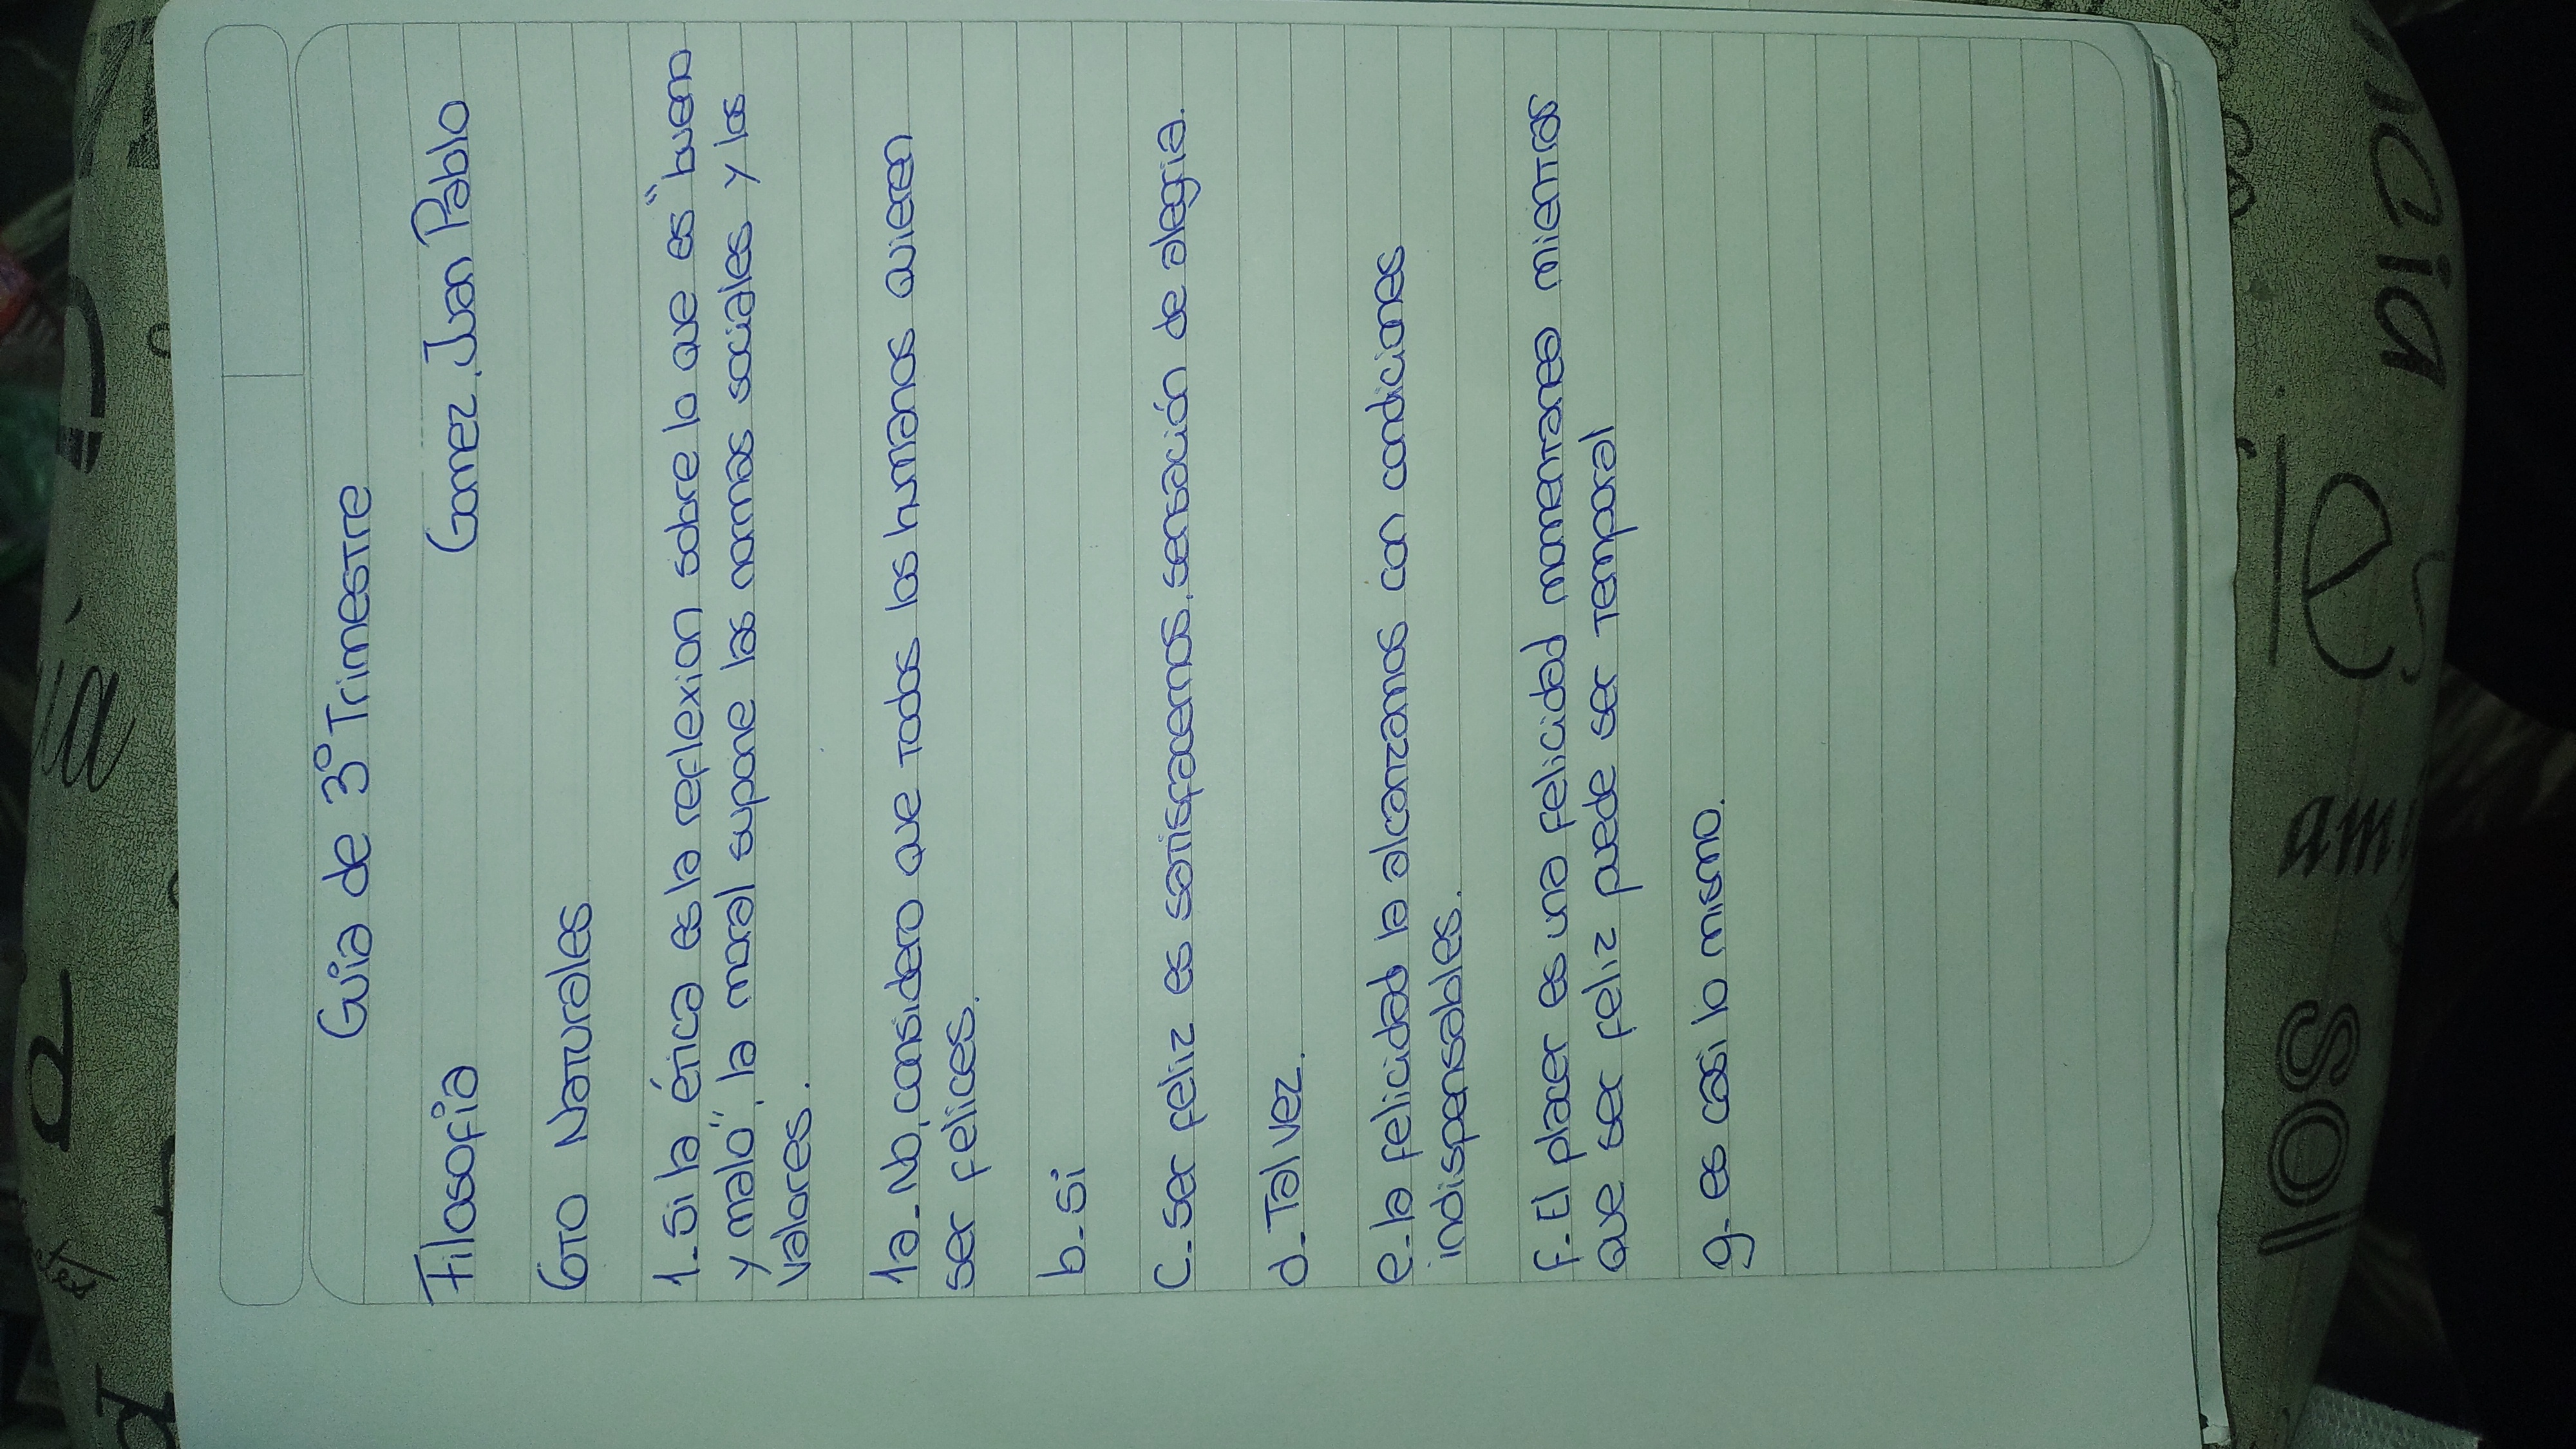 Guia de 3° Trimestre
Filosofia Gomez, Juan Pablo
6to Naturales
1-Si la ética es la reflexion sobre lo que es "bueno
y malo", la moral supone las normas sociales y los
valores.
1a-No, considero que todos los humanos quieren
ser felices.
b-si
C-ser feliz es satisfacernos, sensación de alegria.
d-Tal vez.
e-la felicidad la alcanzamos con condiciones
indispensables.
f-El placer es una felicidad momentaneo mientras
que ser feliz puede ser temporal
g-es casi lo mismo.
ia
am
sol